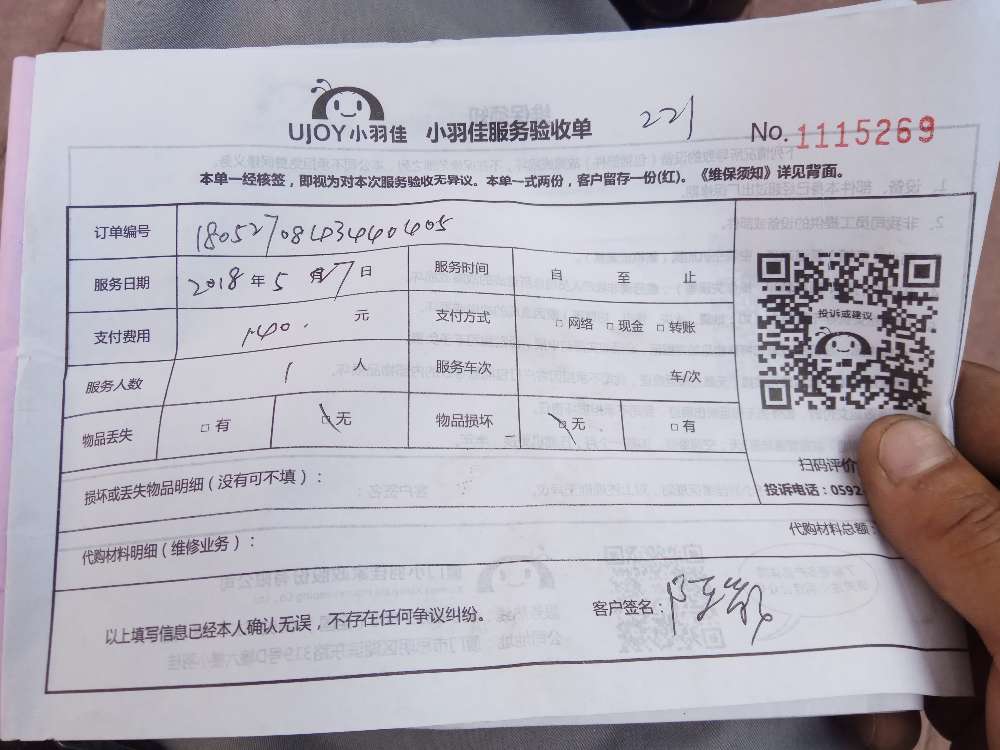 UJOY小羽佳 小羽佳服务验收单 221 No. 1115269
本单一经核签，即视为对本次服务验收无异议。本单一式两份，客户留存一份(红)。《维保须知》详见背面。
订单编号 180527084344040405
服务日期 2018 年 5 月 27 日 服务时间 自 至 止
支付费用 140. 元 支付方式 □ 网络 □ 现金 □ 转账
投诉或建议
服务人数 1 人 服务车次 车/次
物品丢失 □ 有 □ 无 物品损坏 □ 无 □ 有
扫码评价
损坏或丢失物品明细（没有可不填）：
投诉电话：0592
代购材料明细（维修业务）：
代购材料总额：
以上填写信息已经本人确认无误，不存在任何争议纠纷。
客户签名：